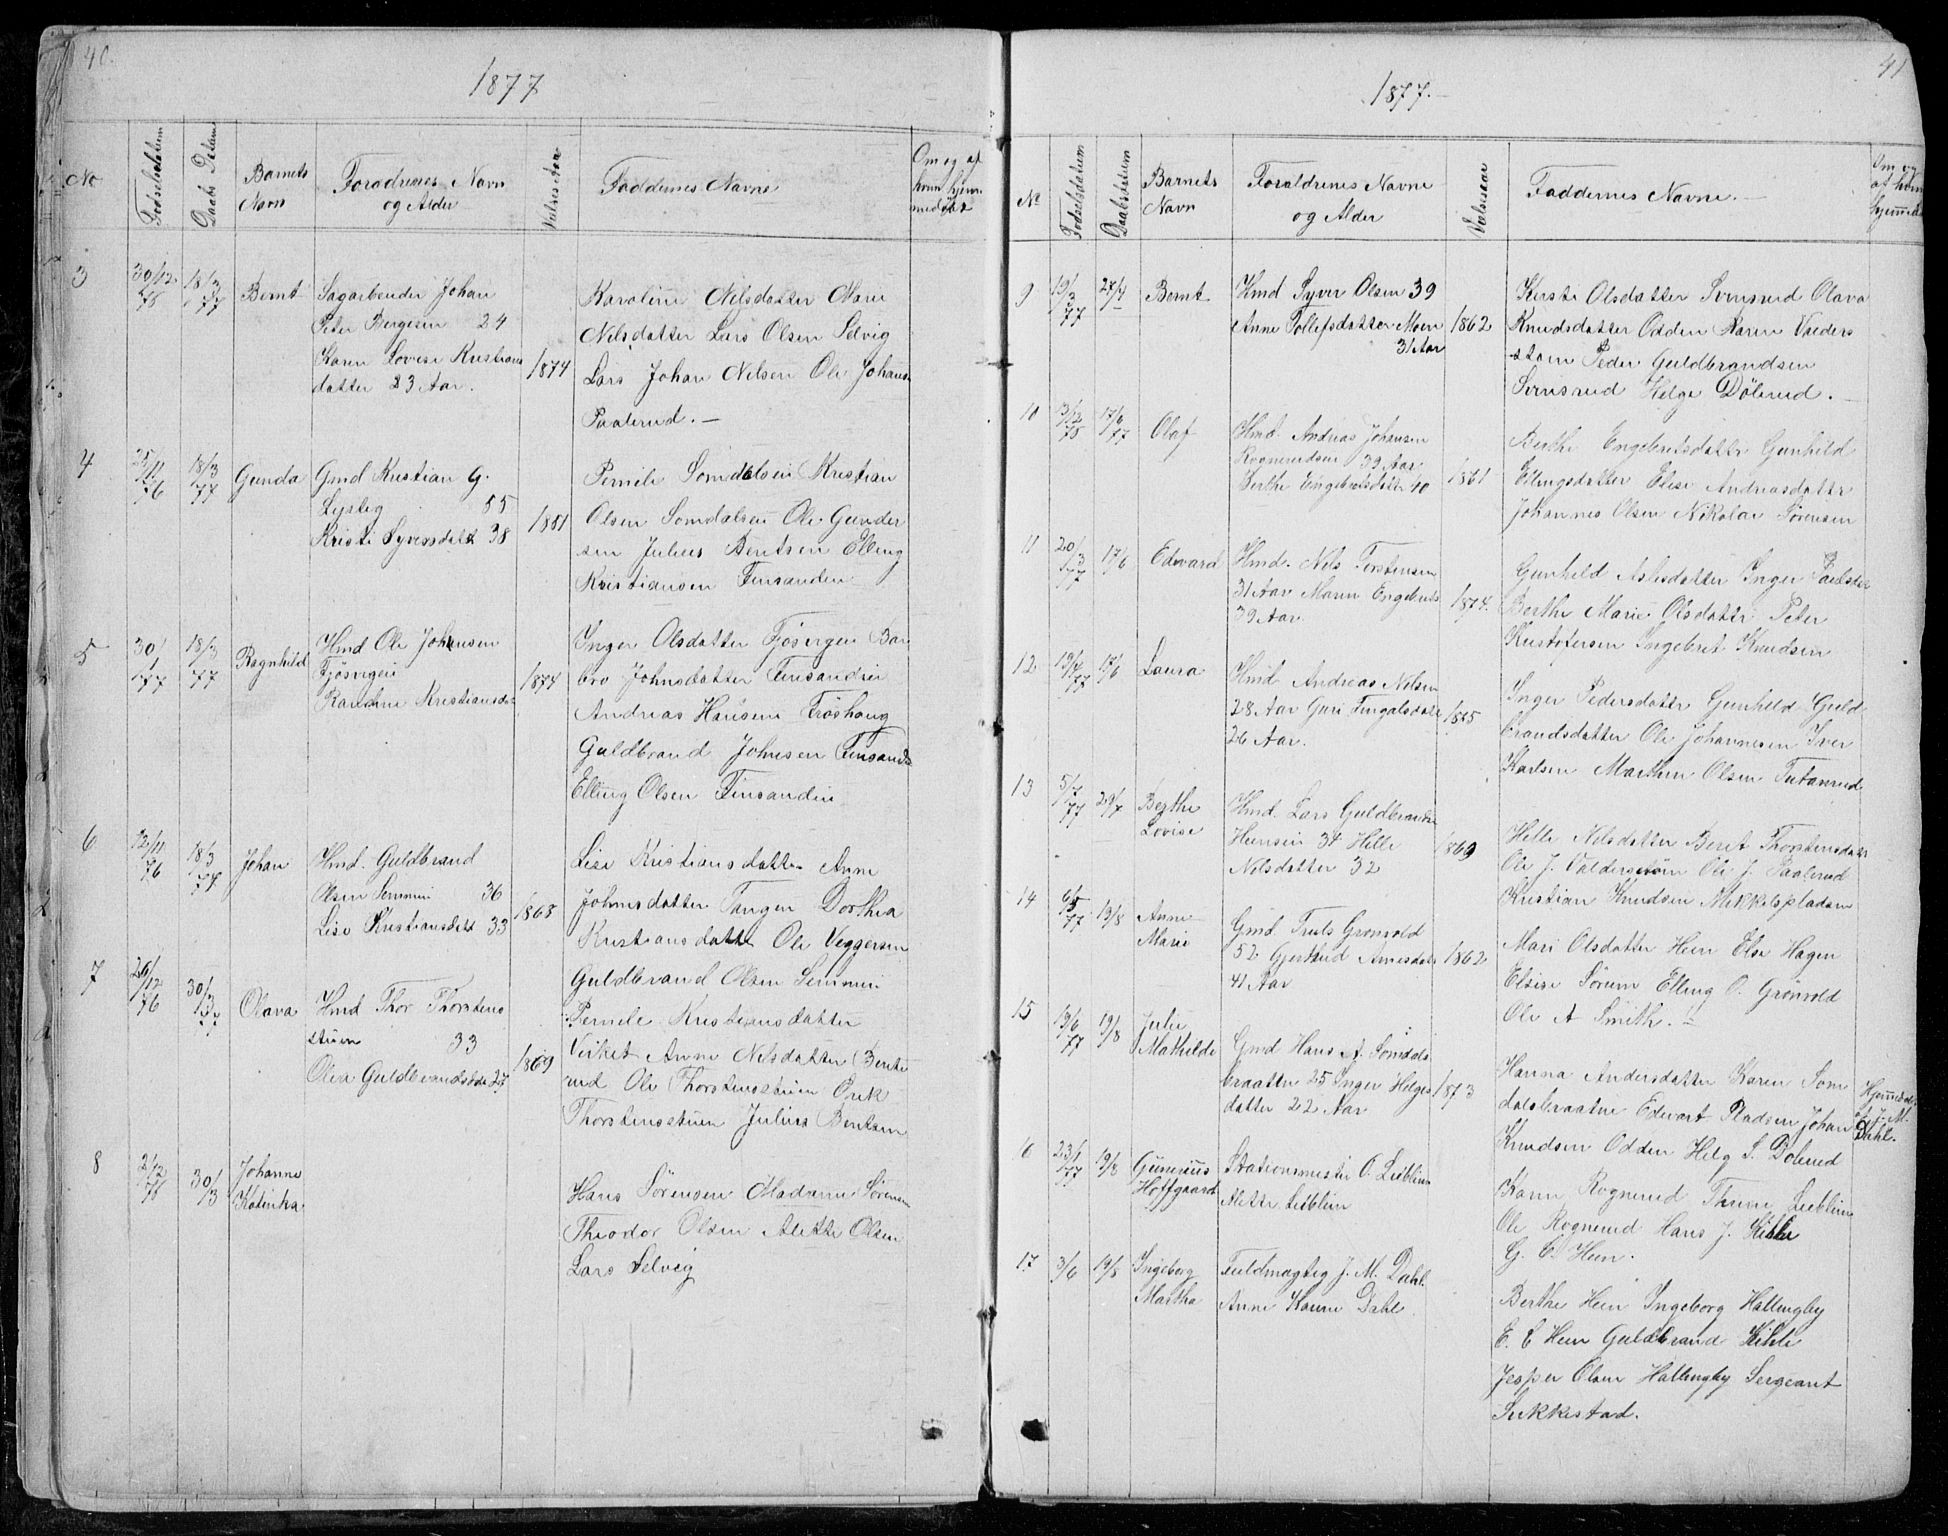 40.
1877
No
Fødselsdatum
Daabs Datum
Barnets Navn
Forældrenes Navn og Alder
Vielses Aar
Faddernes Navne
Om og af hvem hjemmedøbt
3
30/12 75
18/3 77
Bernt
Sagarbeider Johan
Peter Bergesen 24
Karen Lovise Kristians
datter 23 Aar.
1874
Karoline Nilsdatter Mari
Nilsdatter Lars Olsen Selvig
Lars Johan Nilsen Ole Johans
Paalerud. —
4
25/11 76
18/3 77
Gunda
Gmd Kristian G.
Lystig 55
Kristi Syversdatt 38
1881
Pernile Somdalsen Kristian
Olsen Somdalsen Ole Gunder
sen Julius Bentsen Elling
Kristiansen Finsanden
5
30/1 77
18/3 77
Ragnhild
Hmd Ole Johnsen
Fjösvigen
Karohne Kristiansda
1874
Inger Olsdatter Fjösvigen Bar
bro Johnsdatter Finsandin
Andreas Hansen Fröshaug
Guldbrand Johnsen Finsande
Elling Olsen Finsandin
6
12/11 76
18/3 77
Johan
Hmd. Guldbrand
Olsen Semmin 36
Lise Kristiansdatt 33
1868
Lise Kristiansdatter Anne
Johnsdatter Tangen Dorthea
Kristiansdatter Ole Veggersen
Guldbrand Olsen Semmin
7
26/12 76
30/3 77
Olava
Hmd Thor Thorstens
stuen 33
Olea Guldbrandsda 27
1869
Pernile Kristiansdatter
Virket Anne Nilsdatter Bente
rud Ole Thorstensstuen Erik
Thorstensstuen Julius Bentsen
8
2/12 75
30/3
Johanne
Katinka
Hans Sörensen Madame Sörensen
Theodor Olsen Alette Olsen
Lars Selvig
41
1877. —
No
Fødselsdatum
Daabsdatum
Barnets Navn
Forældrenes Navne og Alder
Vielsesaar
Faddernes Navne. —
Om og af hvem hjemmed
9
19/3 77
24/4
Bernt
Hmd Syver Olsen 39
Anne Tollefsdatter Moen
31 Aar
1862
Kirsti Olsdatter Svensrud Olava
Knudsdatter Odden Karen Valders
støen Peder Guldbrandsen
Svensrud Helge Dölerud. —
10
3/12 75
17/6 77
Olaf
Hmd. Andreas Johansen
Rognerudsen 39 Aar
Berthe Engebretsdatter 40
1861
Berthe Engebretsdatter Gunhild
Ellingsdatter Elise Andreasdatter
Johannes Olsen Nikolai Sörensen
11
20/3 77
17/6
Edevard
Hmd. Nils Torstensen
31 Aar Maren Engebrets
39 Aar.
1874.
Gunhild Aslesdatter Inger Paulsdtr
Berthe Marie Olsdatter Peter
Kristofersen Ingebret Knudsen
12
19/4 77
17/6
Laura
Hmd Andreas Nilsen
28 Aar Guri Fingalsdatt
26 Aar.
1875
Inger Pedersdatter Gunhild Guld
brandsdatter Ole Johannesen Iver
Karlsen Marthin Olsen Tutanrud
13
5/7 77
29/7
Berthe
Lovise
Hmd. Lars Guldbrands
Heinsen 34 Helle
Nilsdatter 32
1869
Helle Nilsdatter Beret Thorstensdatt
Ole J. Valderstøen Ole J. Paalerud
Kristian Knudsen Mikkelspladsen
14
6/5 77
13/8
Anne
Marie
Gmd Truls Grönvold
52 Gjertrud Arnesdatt
41 Aar
1862
Mari Olsdatter Hein Else Hagen
Elsise Sörum Elling O. Grönvold
Ole A Smith. —
15
19/6 77
19/8
Julie
Mathilde
Gmd Hans A. Somdals
braaten 25 Inger Helges
datter 22 Aar
1873
Hanna Andersdatter Karen Som
dalsbraaten Edevart Pladsen Johan
Knudsen Odden Helg S. Dölerud
Hjemmedöbt
af J. M.
Dahl.
6
23/1 77
19/8
Gunerius
Hoffgaard
Stationsmester O. Lieblin
Alette Lieblein
Karen Rognerud Thrine Lieblein
Ole Rognerud Hans J. Kihle
G. C. Hein.
17
3/6
19/8
Ingeborg
Martha
Fuldmægtig J. M. Dahl
Anne Karine Dahl.
Berthe Hein Ingeborg Hallingby
E. C Hein Guldbrand Kihle
Jesper Olsen Hallingby Sergeant
Sukkestad.